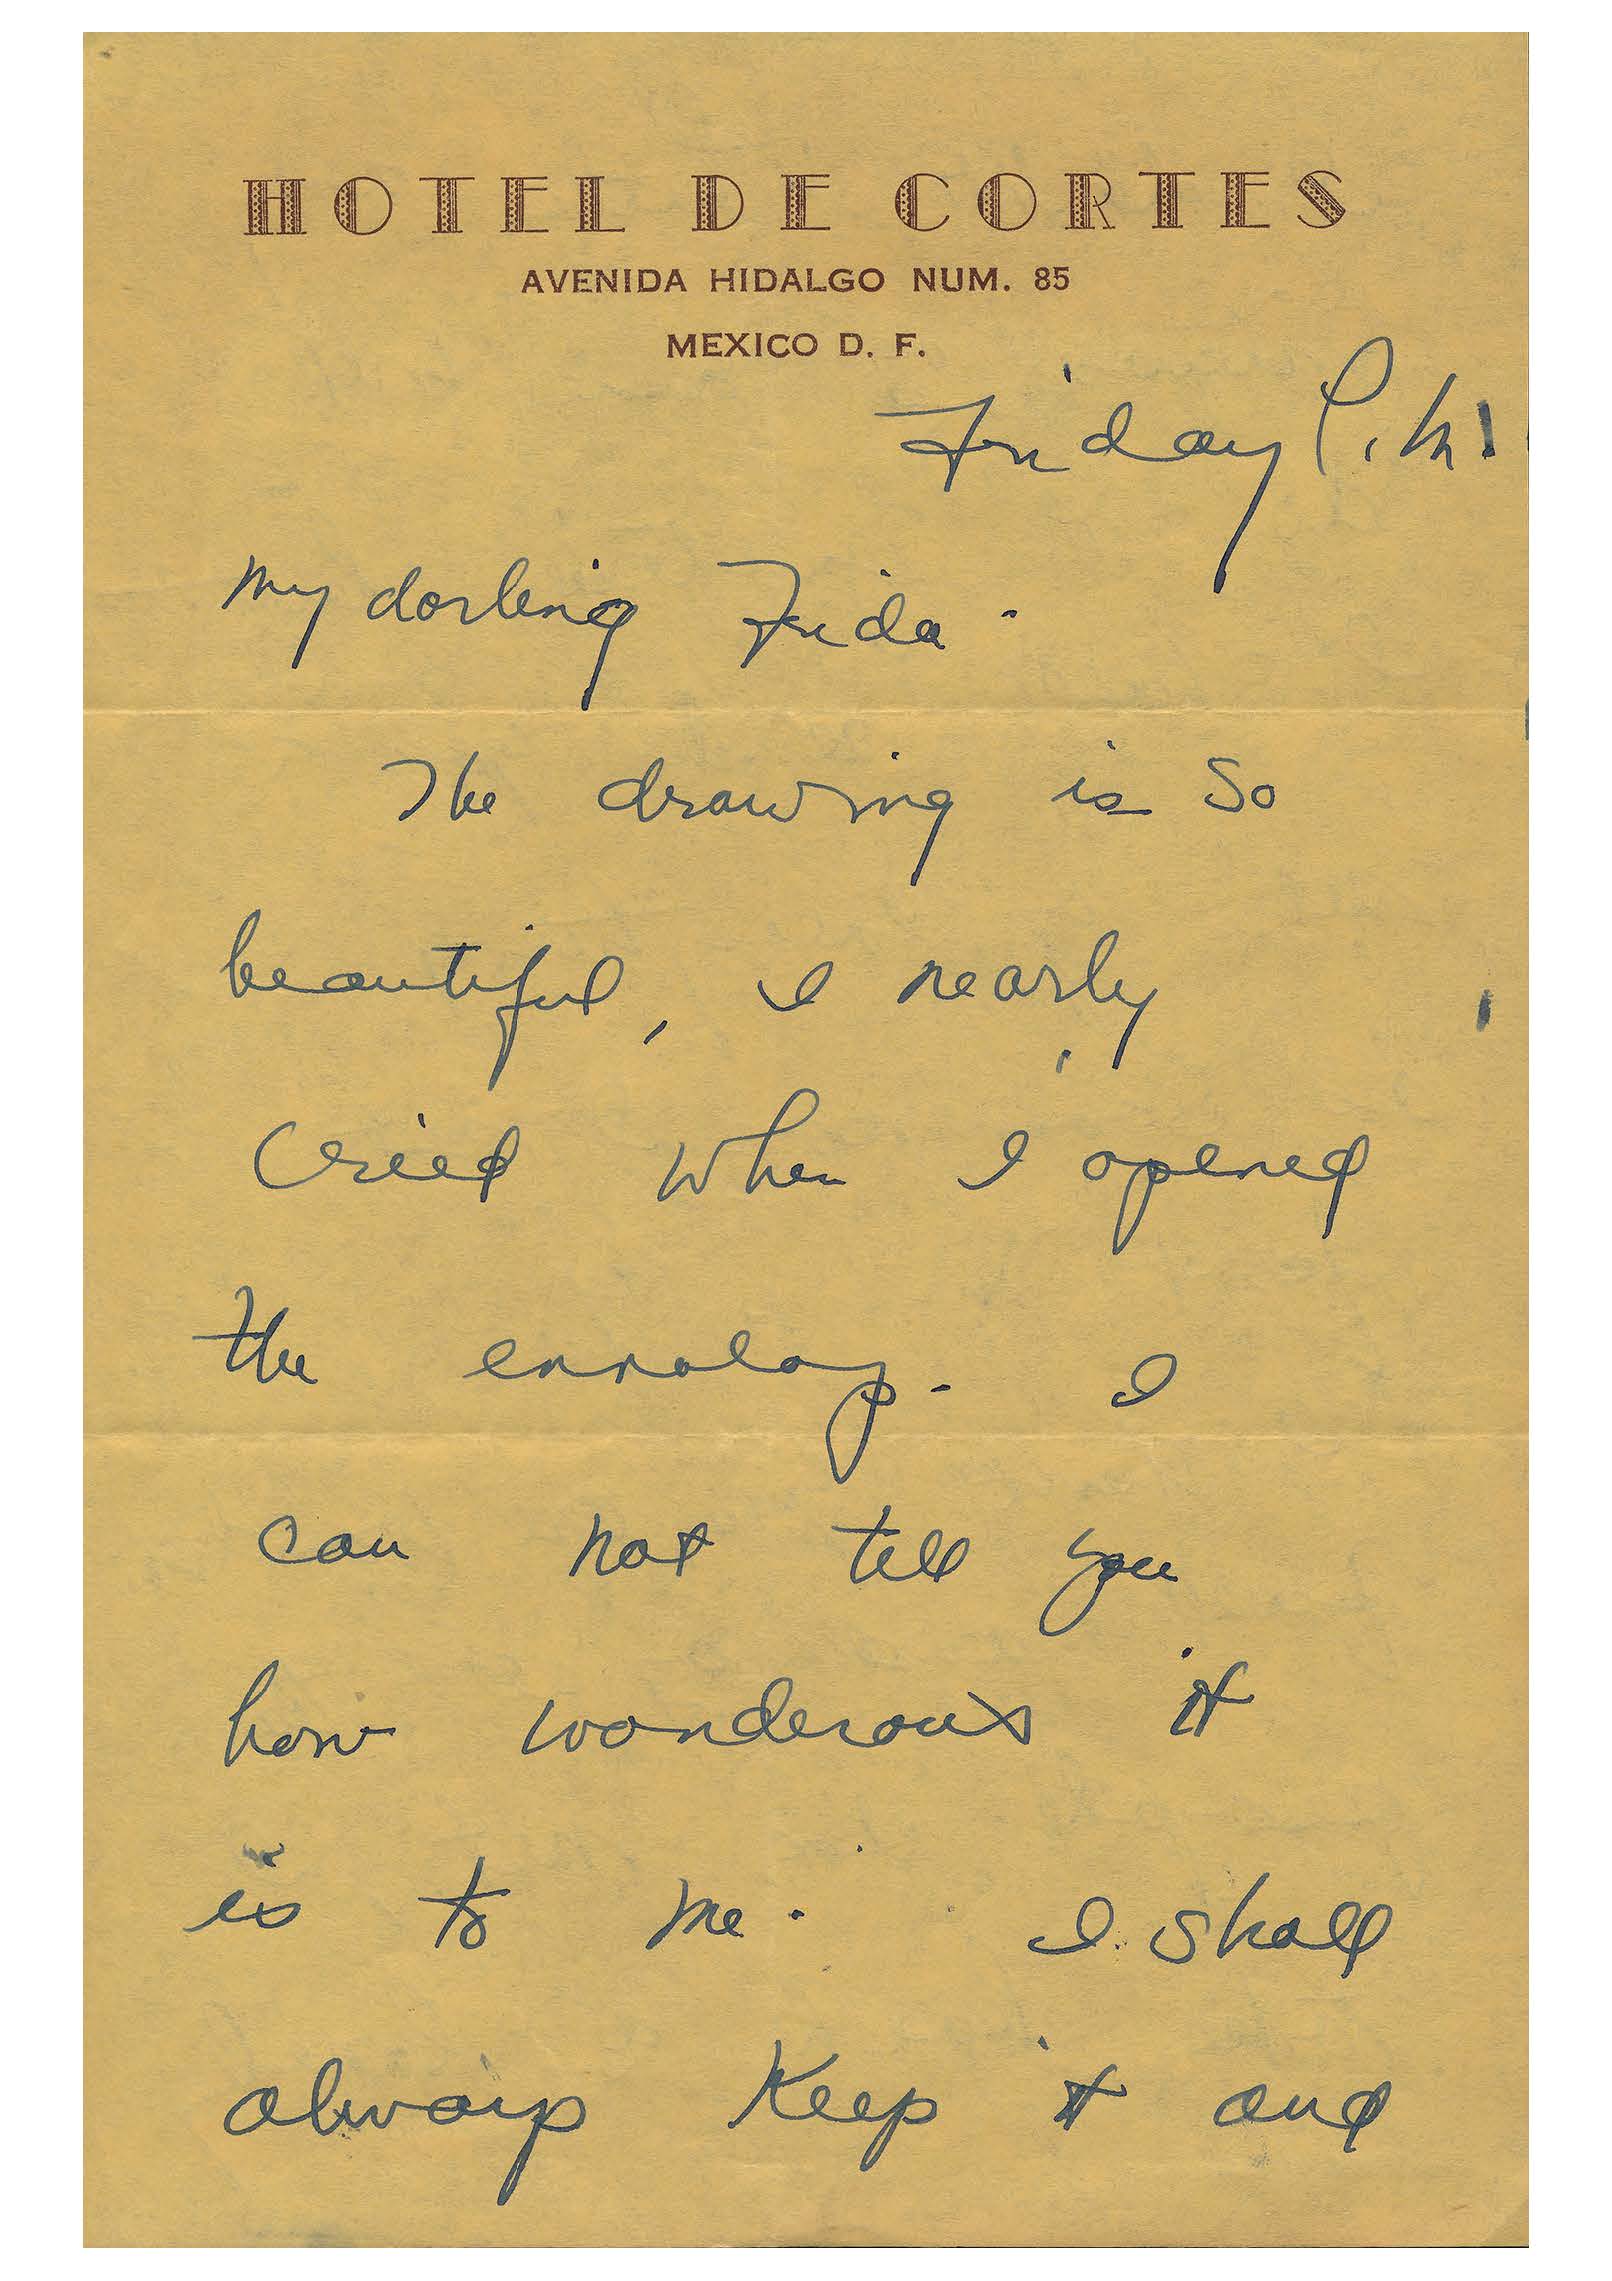 HOTEL DE CORTES
AVENIDA HIDALGO NUM. 85
MEXICO D. F.
Friday P.M.
My darling Frida -
The drawing is so
beautiful, I nearly
cried when I opened
the envelop. I
can not tell you
how wonderous it
is to me. I shall
always keep it and